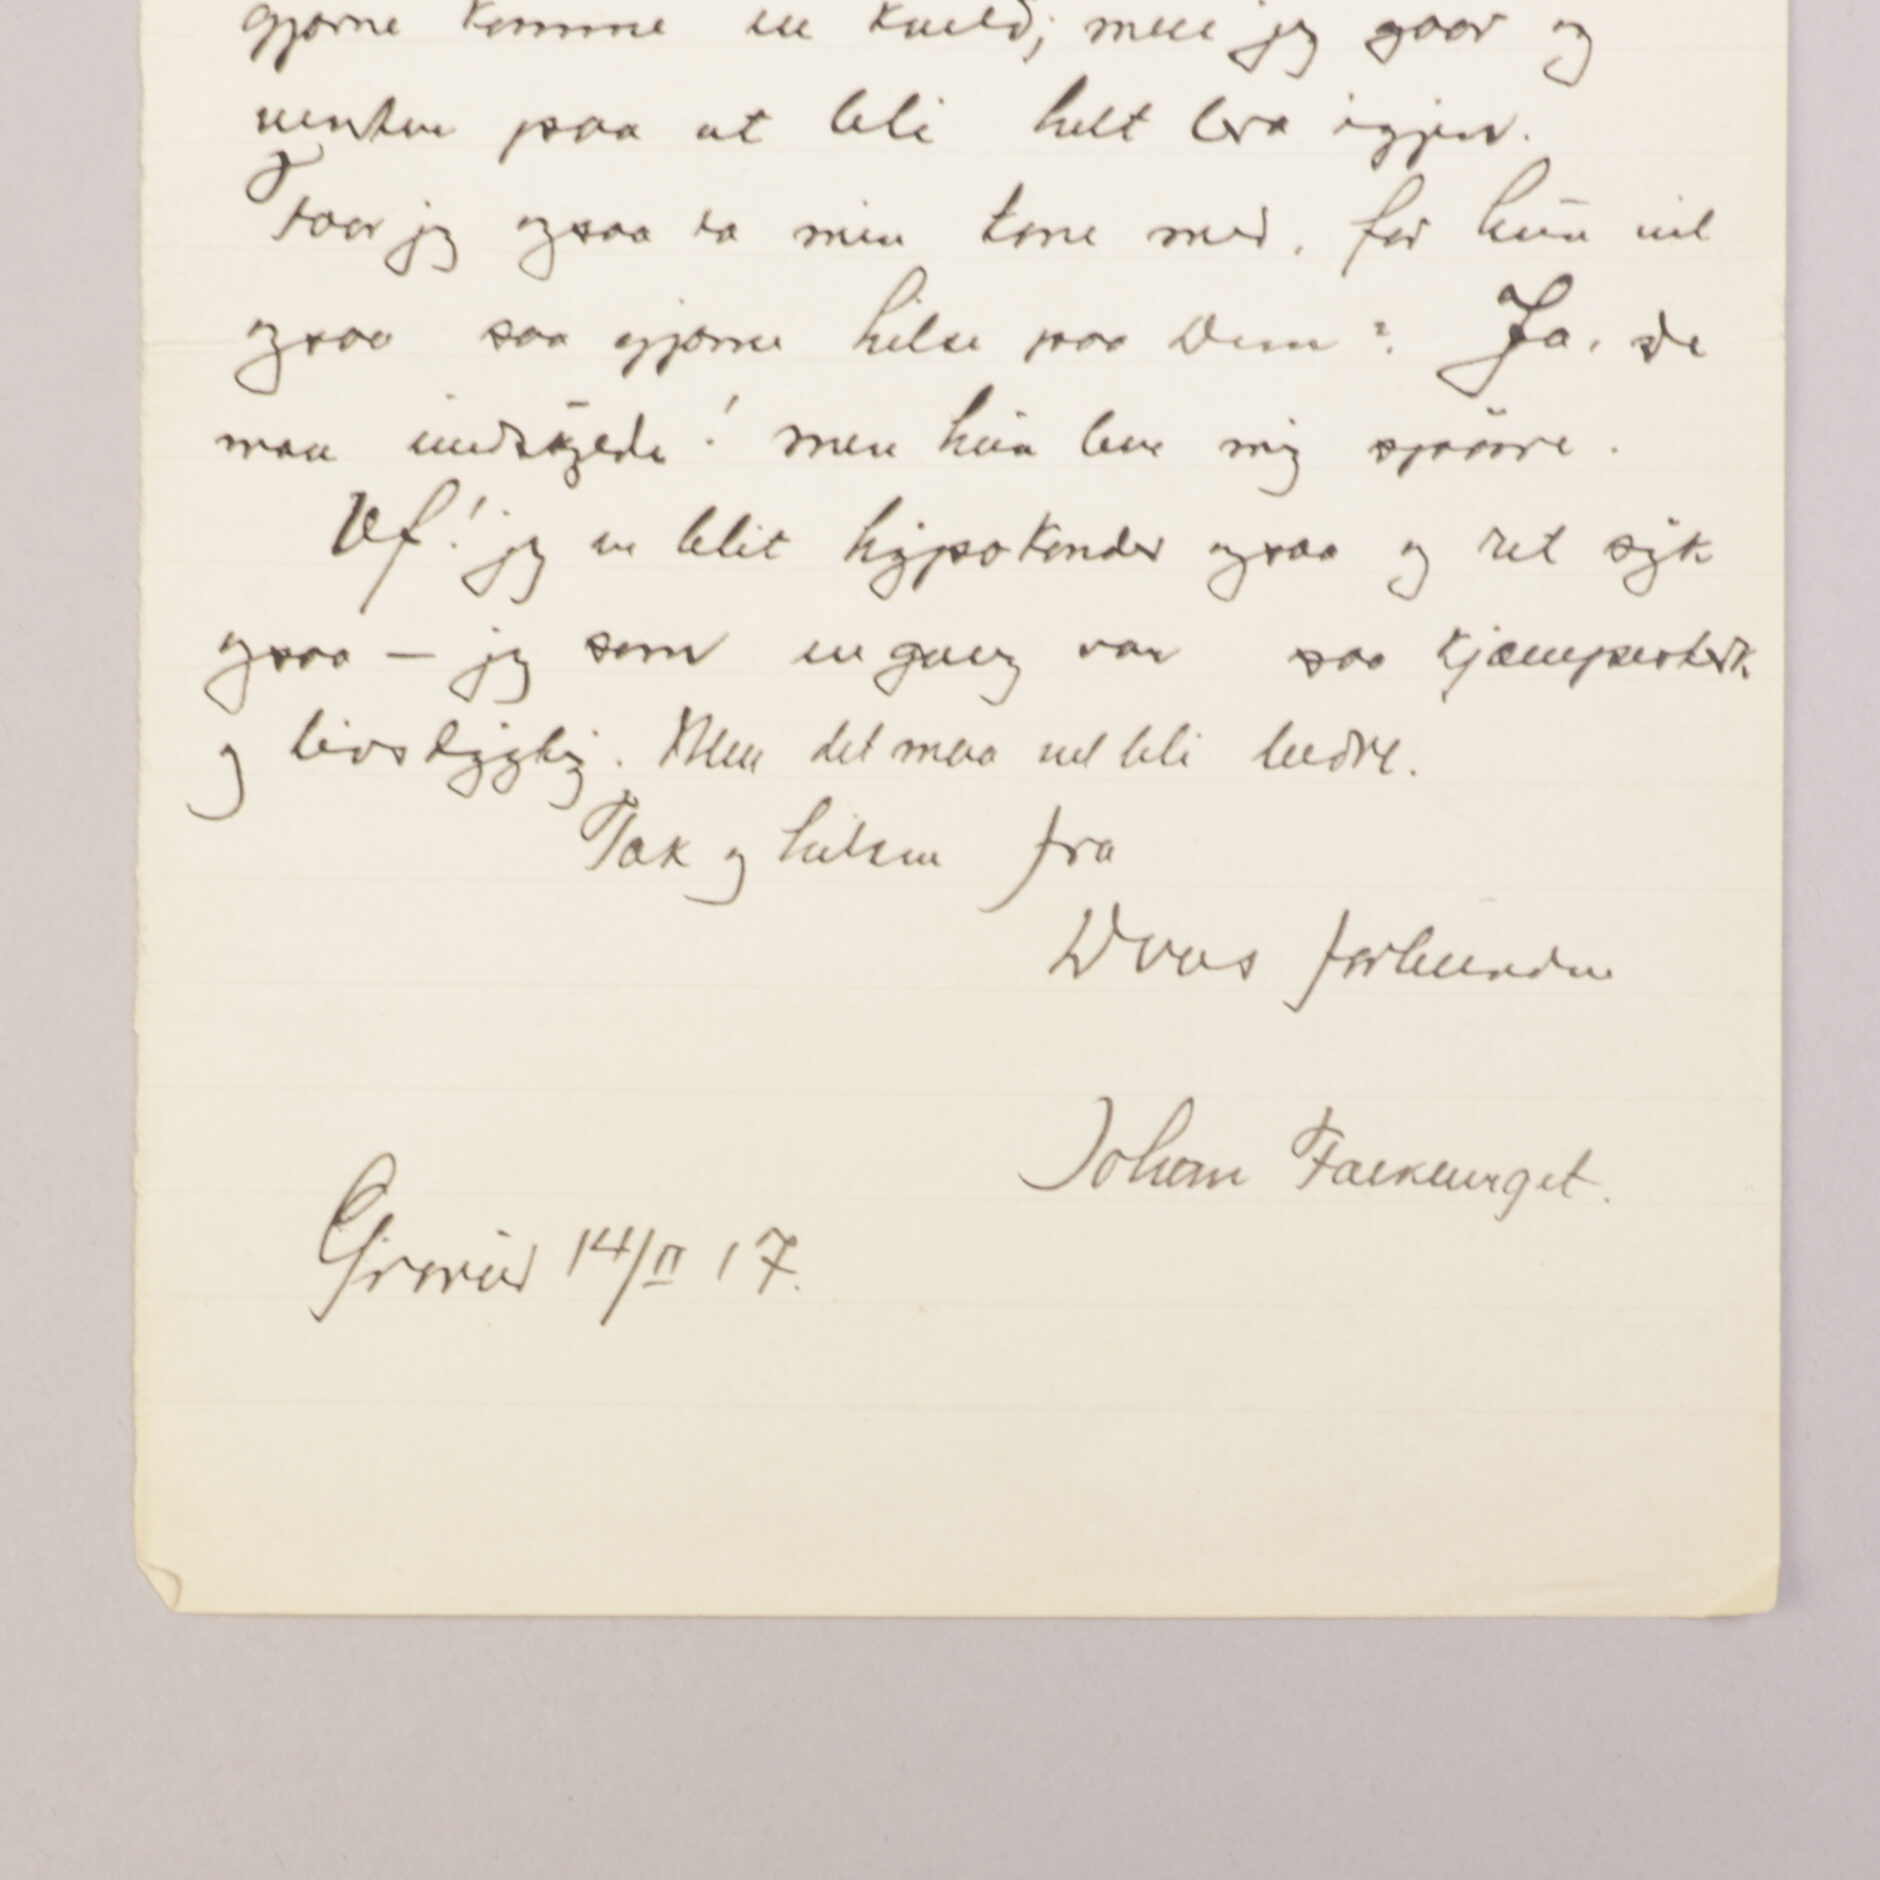 gjerne komme en kveld; men jeg gaar og
venter paa at bli helt bra igjen.
Faar jeg ogsaa ta min kone med, for hun vil
ogsaa saa gjerne hilse paa Dem? Ja, De
maa undskylde! men hun ber mig spørre.
Uf! jeg er blit hypokonder ogsaa og ret syk
ogsaa — jeg som engang var saa kjæmpesterk
og livslystig. Men det maa vel bli bedre.
Tak og hilsen fra
Deres forbundne
Johan Falkberget.
Grorud 14/II 17.